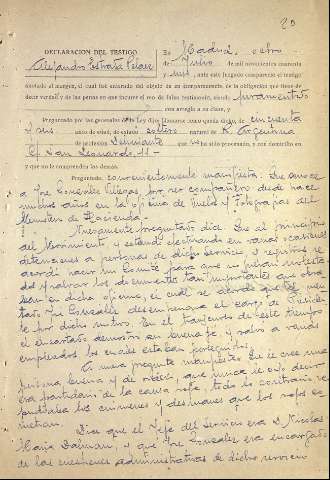 20
DECLARACION DEL TESTIGO
En Madrid, ocho
Alejandro Estrada Pelaez
de Junio de mil novecientos cuarenta
y uno, ante este Juzgado compareció el testigo
anotado al margen, el cual fue enterado del objeto de su comparecencia, de la obligación que tiene de
decir verdad y de las penas en que incurre el reo de falso testimonio, siendo juramentado
con arreglo a su clase, y
Preguntado por las generales de la Ley dijo llamarse como queda dicho, de cincuenta
y seis años de edad, de estado soltero natural de R. Argentina
de profesión y que no ha sido procesado, y con domicilio en
C/ San Leonardo, 11
y que no le comprenden las demás.
Preguntado convenientemente manifiesta: Que conoce
a José González Villegas por ser compañero desde hace
muchos años en la oficina de Fotografías del
Ministerio de Hacienda.
Nuevamente preguntado dice: Que al principio
del Movimiento, y estando efectuando en varias ocasiones
detenciones a personas de dicho Servicio, se
acordó hacer un Comité para que no
y salvar los documentos tan importantes que
en dicha oficina, el cual se
José González desempeñara el cargo de Presidente
por dichos motivos. En el transcurso de este tiempo
el encartado demostró su buena fe, y salvó a varios
empleados los cuales estaban perseguidos.
A otra pregunta manifiesta: Que le cree una
persona buena y de orden, que nunca le oyó decir
era partidario de la causa roja, todo lo contrario
los crímenes y desmanes que los rojos
Dice que el Jefe del Servicio era D. Nicolás
María Dalmau, y que José González era encargado
de las cuestiones administrativas de dicho servicio